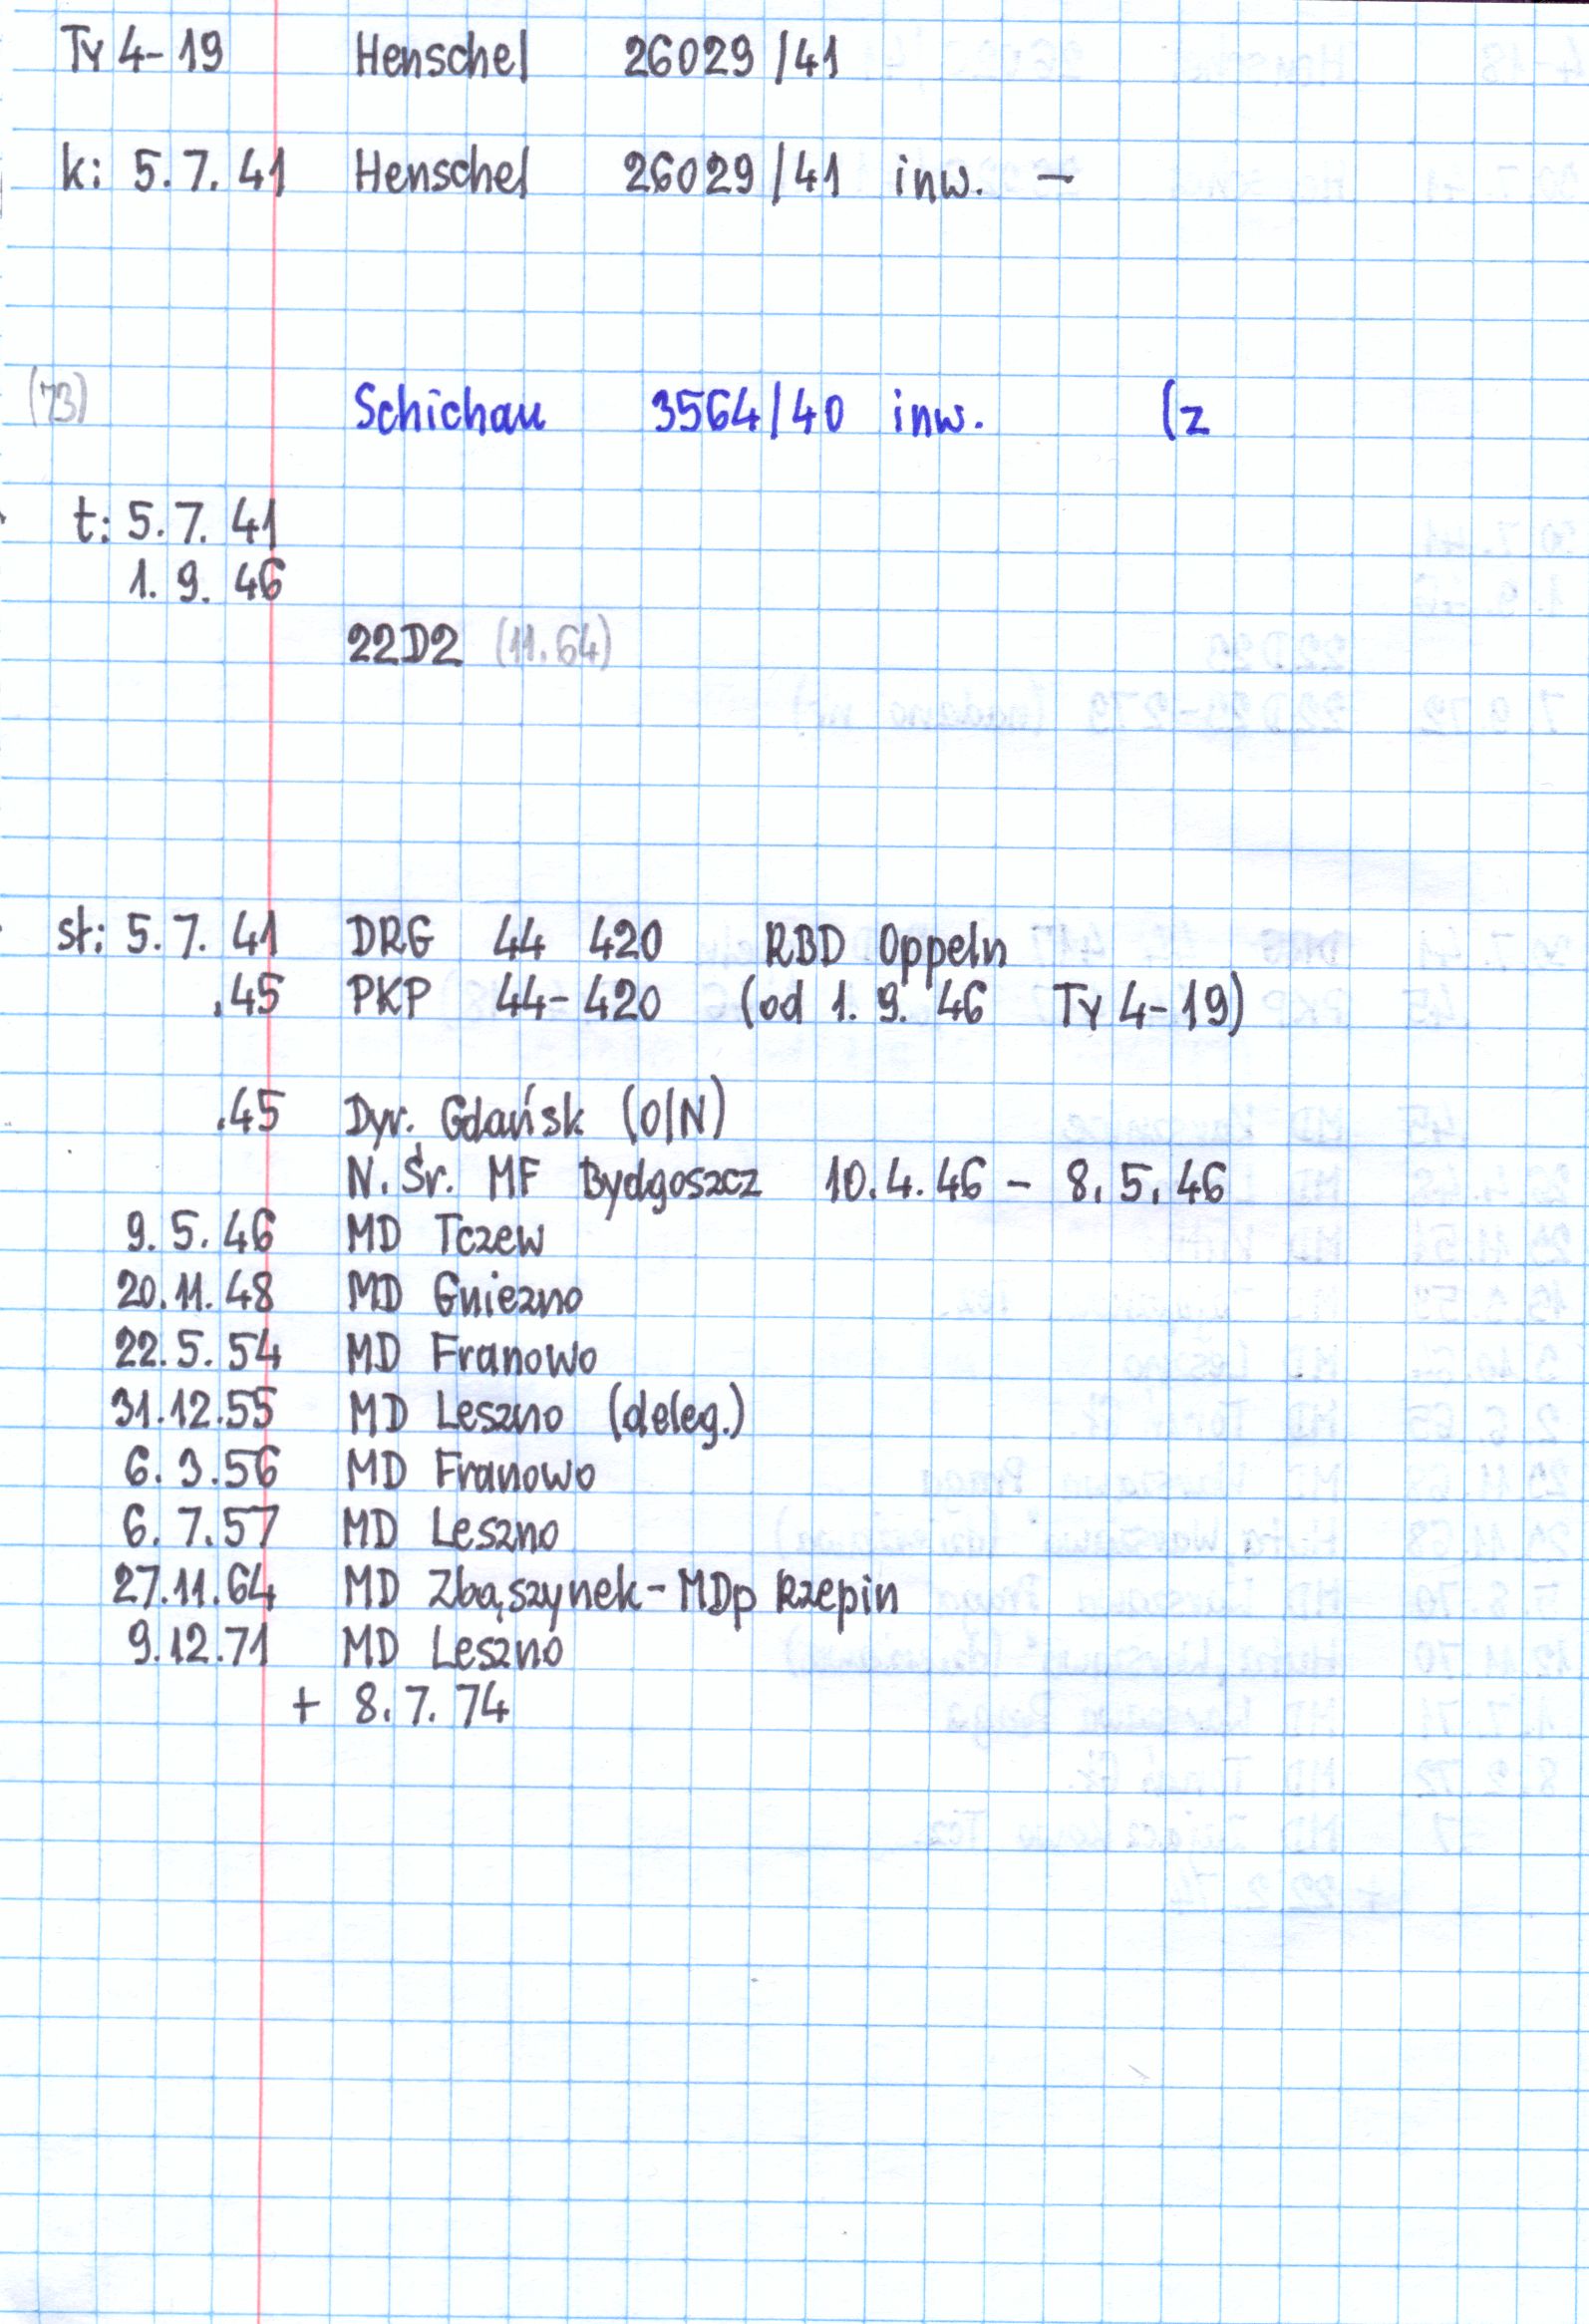 Ty 4-19 Henschel 26029/41
k: 5.7.41 Henschel 26029/41 inw. –
(73) Schichau 3564/40 inw. (z
t: 5.7.41
1.9.46
22D2 (11.64)
st: 5.7.41 DRG 44 420 RBD Oppeln
.45 PKP 44-420 (od 1.9.46 Ty 4-19)
.45 Dyr. Gdańsk (O/N)
N.Śr. MF Bydgoszcz 10.4.46 – 8.5.46
9.5.46 MD Tczew
20.11.48 MD Gniezno
22.5.54 MD Franowo
31.12.55 MD Leszno (deleg.)
6.3.56 MD Franowo
6.7.57 MD Leszno
27.11.64 MD Zbąszynek-MDp Rzepin
9.12.71 MD Leszno
+ 8.7.74